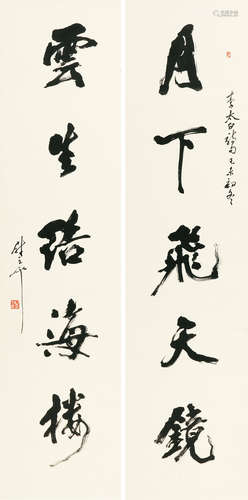 月下飛天鏡
李太白詩句
初冬
雲生結海樓